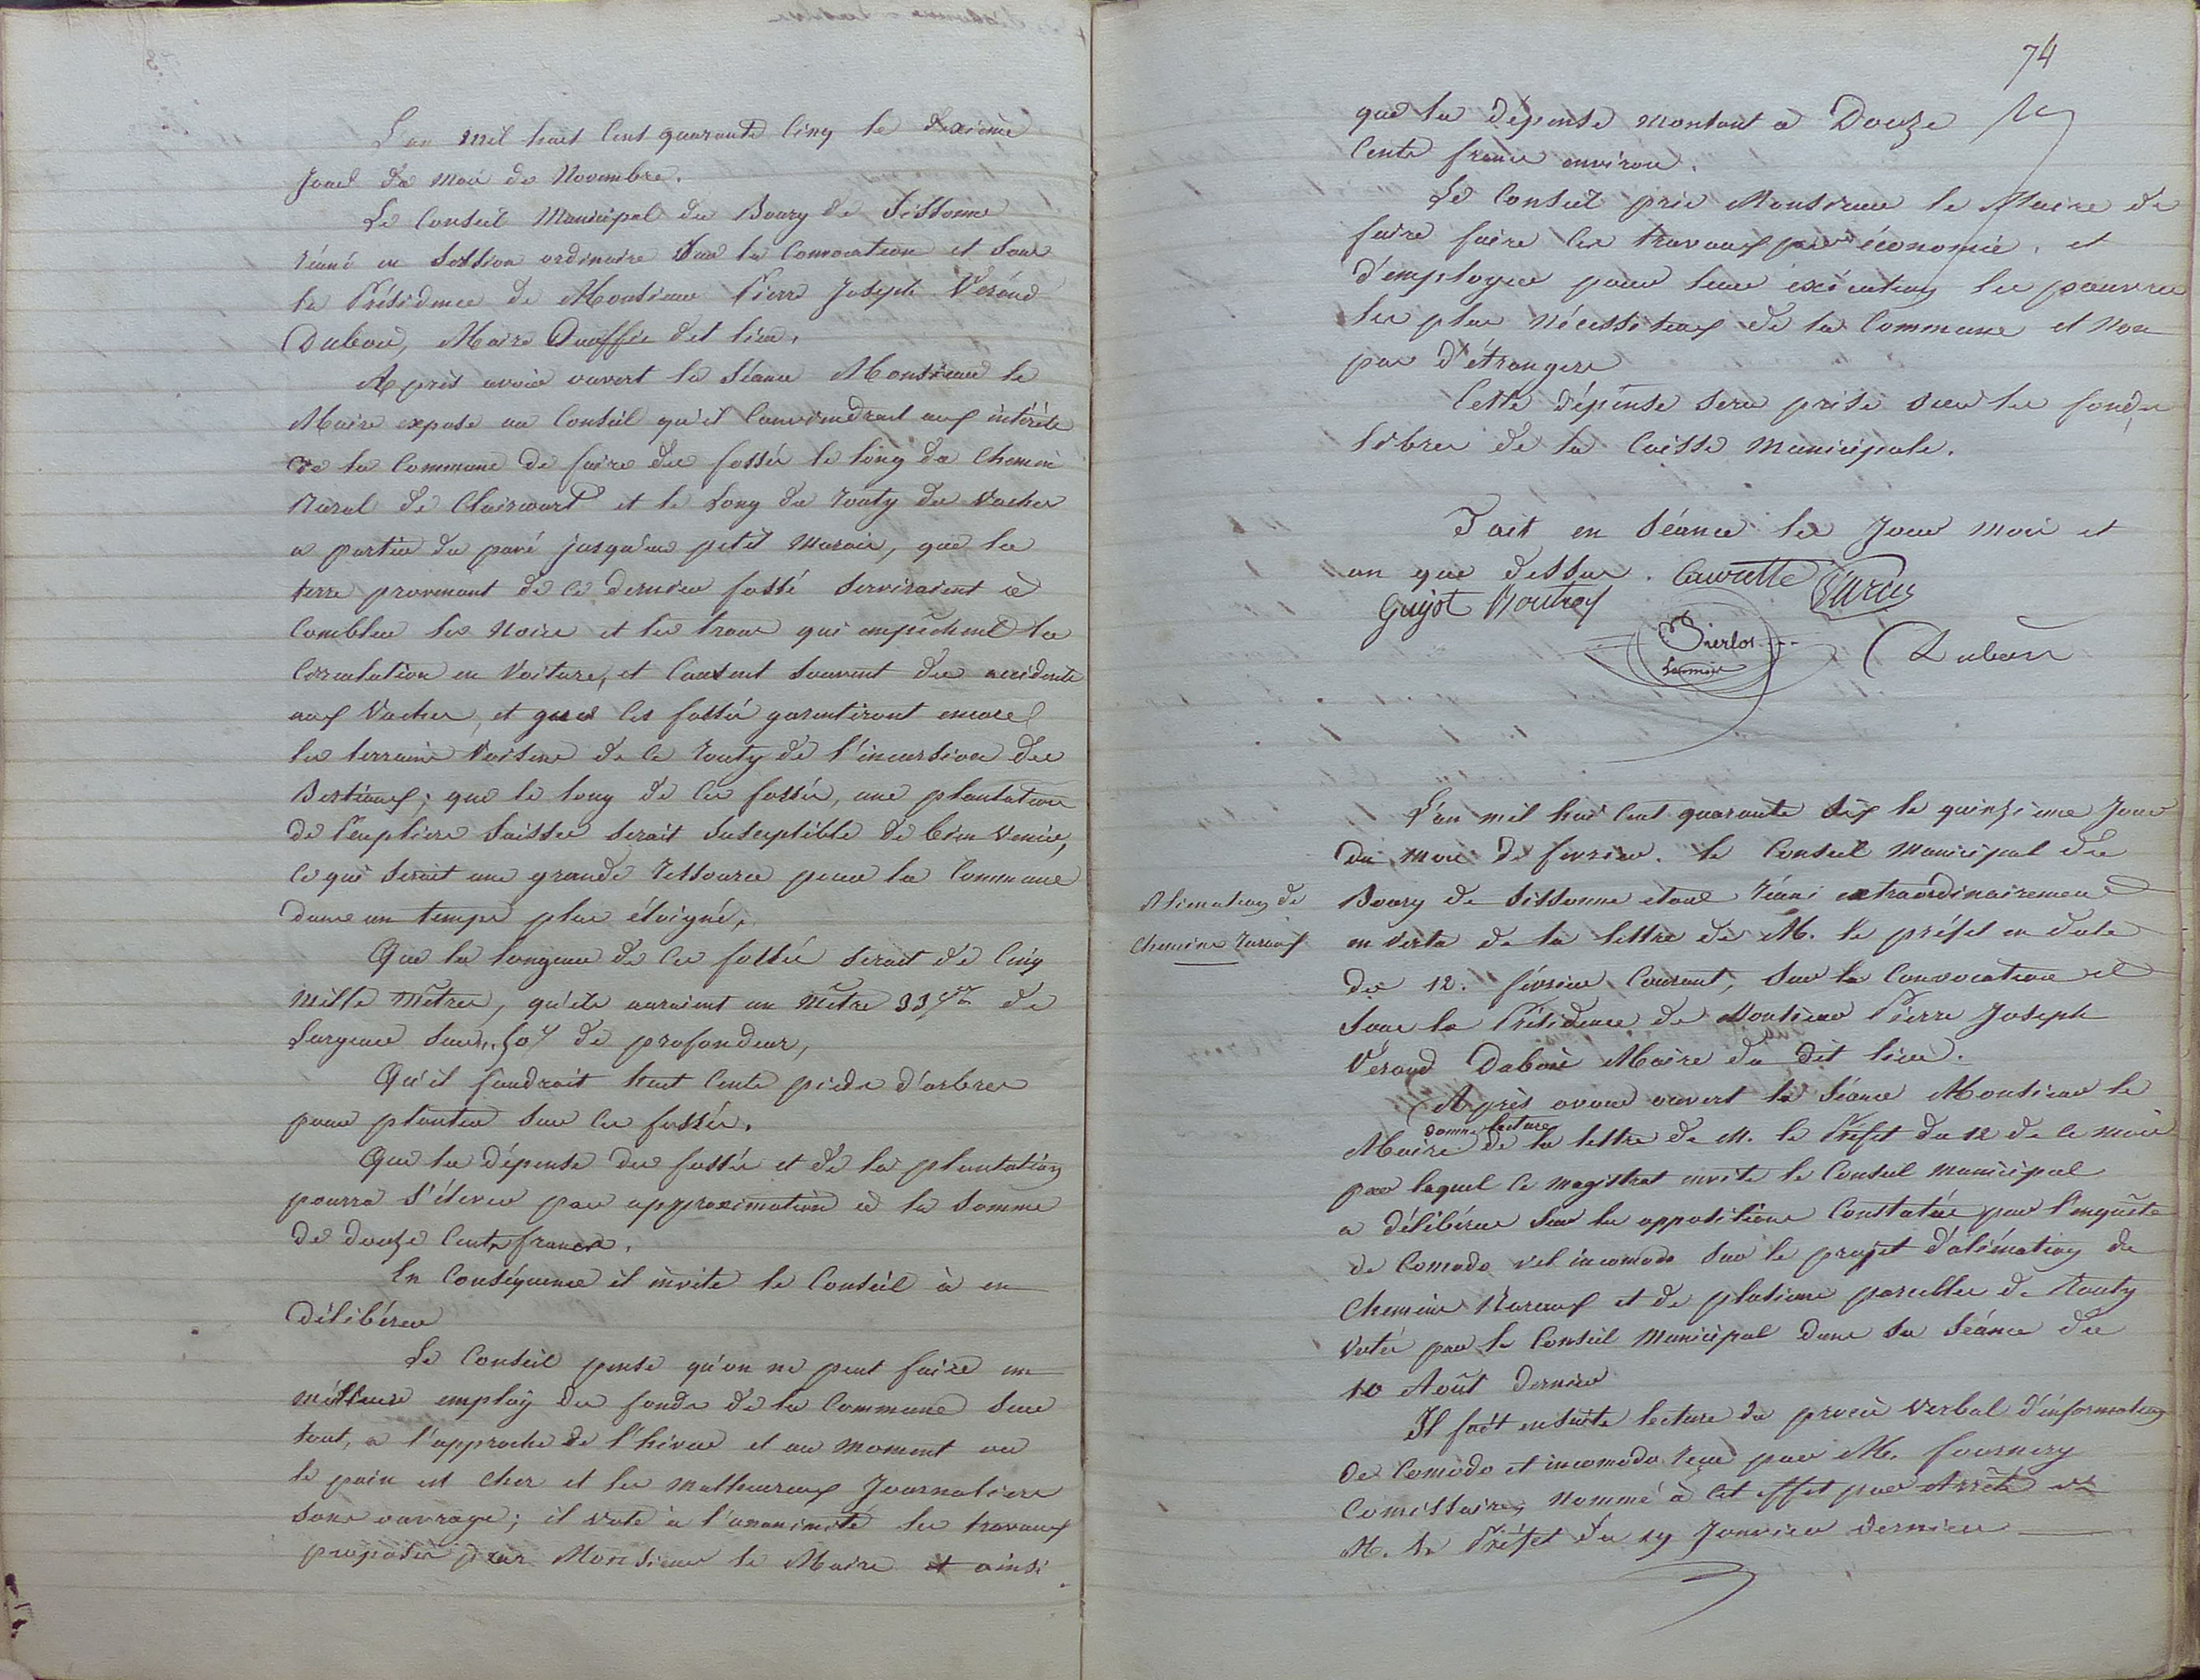 L'an mil huit Cent quarante Cinq le dixième
Jour du mois de Novembre.
Le Conseil Municipal du Bourg de Sissonne
réuni en Session ordinaire Sur la Convocation et Sous
la Présidence de Monsieur Pierre Joseph Vérond
Dubois, Maire dudit lieu.
Après avoir ouvert la Séance Monsieur le
Maire expose au Conseil qu'il Conviendrait aux intérêts
de la Commune de faire des fossés le long du Chemin
Rural de Clairwart et le Long du routy des Vaches
a partir du pavé jusqu'au petit Marais, que les
terres provenant de ce dernier fossé Serviraient à
Combler les Noires et les trous qui empêchent la
Circulation en Voiture, et Causent Souvent des accidents
aux Vaches, et que ces fossés garantiront encore
les terrains Voisins de ce routy de l'incursion des
Bestiaux; que le long de ces fossés, une plantation
de Peupliers Suisses Serait Susceptible de bien Venir,
Ce qui Serait une grande ressource pour la Commune
dans un temps plus éloigné.
Que la longueur de ces fossés Serait de Cinq
Mille Mètres, qu'ils auraient un Mètre 33 de
Largeur Sur 50 de profondeur,
Qu'il faudrait huit Cents pieds d'arbres
pour planter Sur ces fossés.
Que la dépense des fossés et de la plantation
pourra S'élever par approximation à la Somme
de douze Cents francs.
En Conséquence il invite le Conseil à en
Délibérer
Le Conseil pense qu'on ne peut faire un
meilleur employ des fonds de la Commune Sur
tout, a l'approche de l'hiver et au Moment ou
le pain est Cher et les Malheureux Journaliers
Sans ouvrage; il Vote à l'unanimité les travaux
proposés par Monsieur le Maire et ainsi
74
que la dépense montant a Douze
Cents francs environ.
Le Conseil prie Monsieur le Maire de
faire faire les travaux par économie, et
d'employer pour leur exécution les pauvres
les plus Nécessiteux de la Commune et Non
pas d'étrangers
Cette dépense Sera prise Sur les fonds
libres de la Caisse Municipale.
Fait en Séance les Jour Mois et
an que dessus.
Guyot
Bierlot
Lemoine
Dubois
L'an mil huit Cent quarante Six le quinzième Jour
du mois de février. le Conseil Municipal du
Bourg de Sissonne étant réuni extraordinairement
en Vertu de la lettre de M. le préfet en date
du 12. février Courant, Sur la Convocation et
Sous la Présidence de Monsieur Pierre Joseph
Vérond Dubois Maire du dit lieu.
Aliénation de
Chemins ruraux
Après avoir ouvert la Séance Monsieur le
donne lecture
Maire de la lettre de M. le Préfet du 12 de ce mois
par laquel ce magistrat invite le Conseil Municipal
a délibérer Sur les oppositions Constatées par l'enquête
de Comodo vel incomodo Sur le projet d'aliénation de
Chemins Ruraux et de plusieurs parcelles de Routy
Votés par le Conseil Municipal dans Sa Séance du
10 Août dernier
Il fait ensuite lecture du procès Verbal d'information
de Comodo et incomodo tenu par M. fournery
Comissaire, Nommé à Cet effet par Arrêté de
M. le Préfet du 19 Janvier dernier